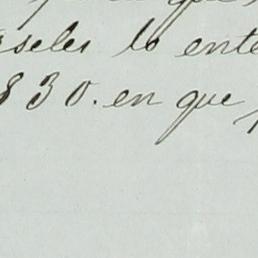 que
seles lo ente
830. en que